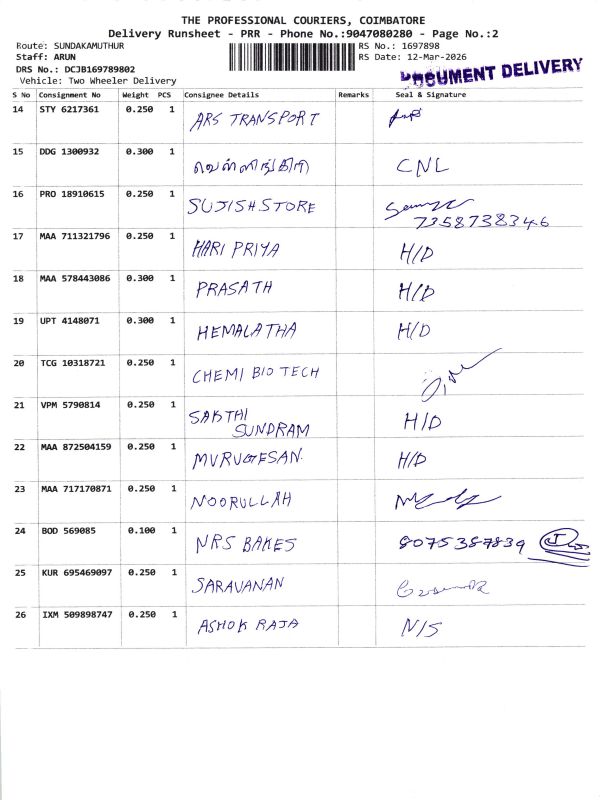 THE PROFESSIONAL COURIERS, COIMBATORE
Delivery Runsheet - PRR - Phone No.:9047080280 - Page No.:2
Route: SUNDAKAMUTHUR RS No.: 1697898
Staff: ARUN RS Date: 12-Mar-2026
DRS No.: DCJB169789802
DOCUMENT DELIVERY
Vehicle: Two Wheeler Delivery
S No Consignment No Weight PCS Consignee Details Remarks Seal & Signature
14 STY 6217361 0.250 1 ARS TRANSPORT
15 DDG 1300932 0.300 1 வெள்ளிங்கிரி CNL
16 PRO 18910615 0.250 1 SUJISH STORE
7358738346
17 MAA 711321796 0.250 1 HARI PRIYA H/D
18 MAA 578443086 0.300 1 PRASATH H/D
19 UPT 4148071 0.300 1 HEMALATHA H/D
20 TCG 10318721 0.250 1 CHEMI BIO TECH
21 VPM 5790814 0.250 1 SAKTHI H/D
SUNDRAM
22 MAA 872504159 0.250 1 MURUGESAN. H/D
23 MAA 717170871 0.250 1 NOORULLAH
24 BOD 569085 0.100 1 NRS BAKES 8075387839
25 KUR 695469097 0.250 1 SARAVANAN
26 IXM 509898747 0.250 1 ASHOK RAJA N/S